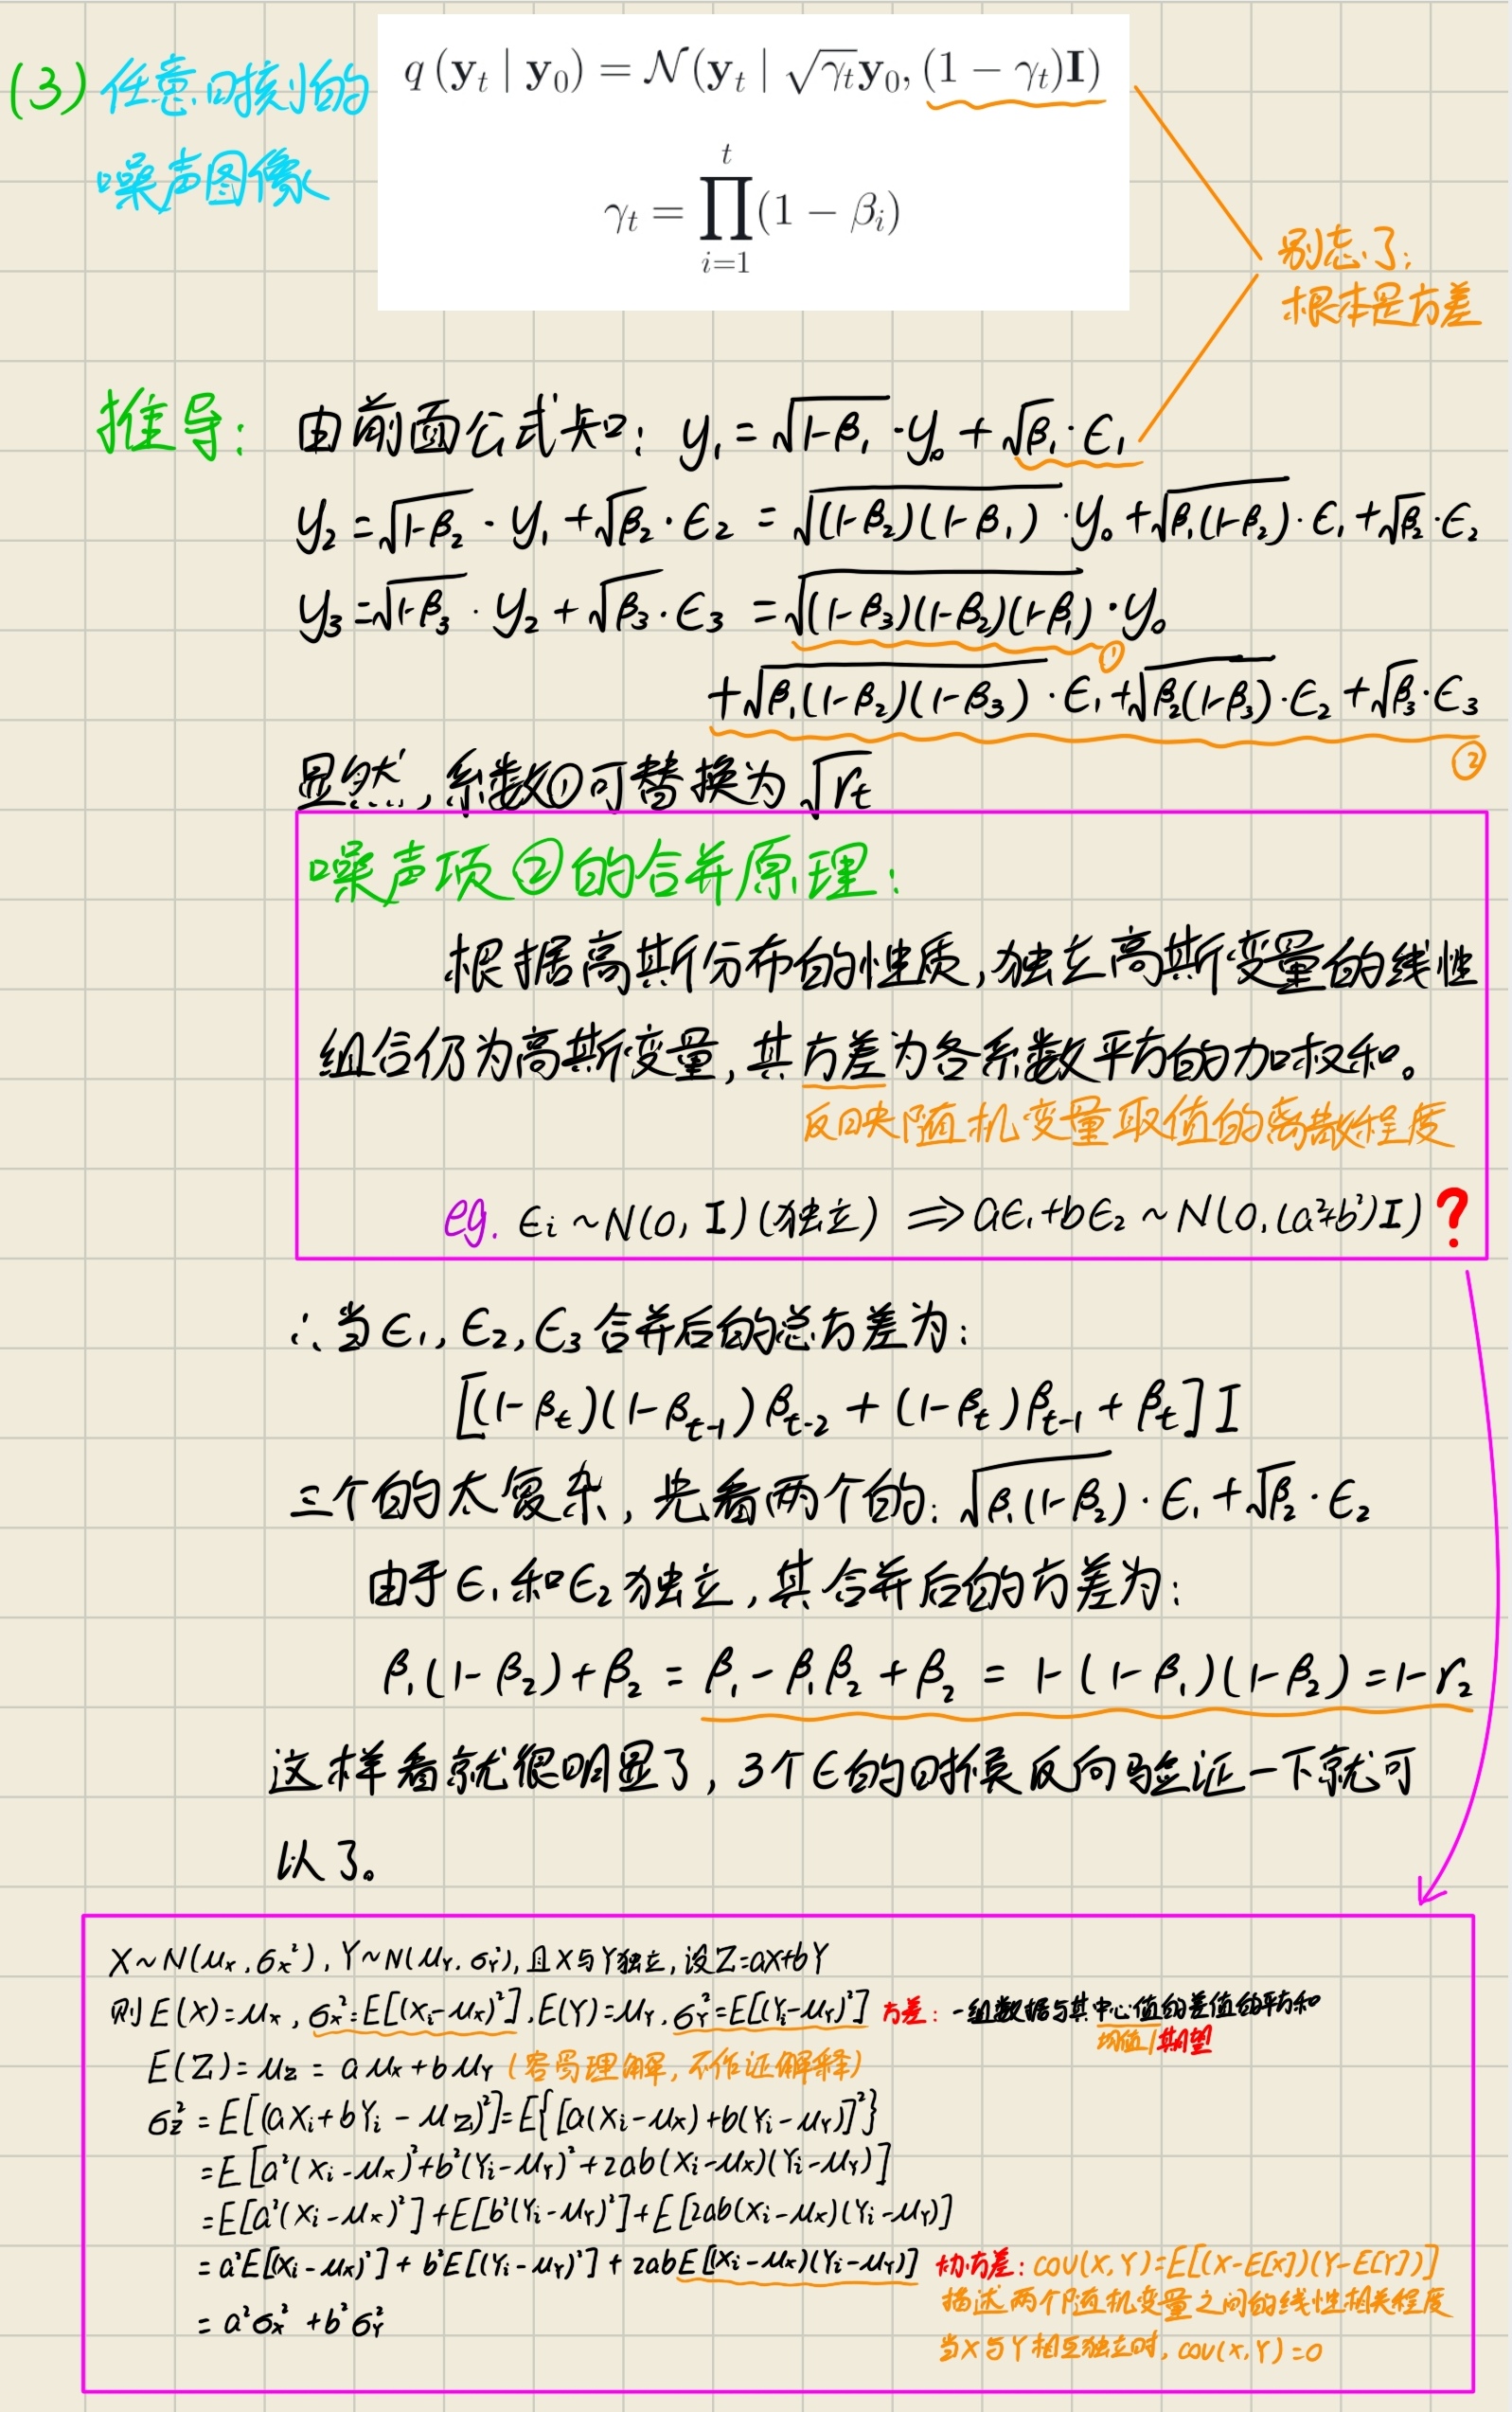 (3) 任意时刻的
噪声图像
q (y_t | y_0) = N(y_t | √γ_t y_0, (1 − γ_t)I)
γ_t = ∏_{i=1}^{t} (1 − β_i)
别忘了:
根本是方差
推导: 由前面公式知: y₁ = √(1-β₁) · y₀ + √β₁ · ϵ₁
y₂ = √(1-β₂) · y₁ + √β₂ · ϵ₂ = √((1-β₂)(1-β₁)) · y₀ + √(β₁(1-β₂)) · ϵ₁ + √β₂ · ϵ₂
y₃ = √(1-β₃) · y₂ + √β₃ · ϵ₃ = √((1-β₃)(1-β₂)(1-β₁)) · y₀ ①
+ √(β₁(1-β₂)(1-β₃)) · ϵ₁ + √(β₂(1-β₃)) · ϵ₂ + √β₃ · ϵ₃ ②
显然, 系数①可替换为 √r_t
噪声项②的合并原理:
根据高斯分布的性质,独立高斯变量的线性
组合仍为高斯变量,其方差为各系数平方的加权和。
反映随机变量取值的离散程度
eg. ϵi ~ N(0, I) (独立) ⇒ aϵ₁+bϵ₂ ~ N(0, (a²+b²)I) ?
∴当ϵ₁, ϵ₂, ϵ₃ 合并后的总方差为:
[(1-β_t)(1-β_{t-1})β_{t-2} + (1-β_t)β_{t-1} + β_t] I
三个的太复杂, 先看两个的: √(β₁(1-β₂)) · ϵ₁ + √β₂ · ϵ₂
由于ϵ₁和ϵ₂独立, 其合并后的方差为:
β₁(1-β₂)+β₂ = β₁ - β₁β₂ + β₂ = 1-(1-β₁)(1-β₂) = 1-r₂
这样看就很明显了, 3个ϵ的时候反向验证一下就可
以了。
X~N(μx, σx²), Y~N(μY, σY²), 且X与Y独立, 设Z=aX+bY
则 E(X)=μx, σx²=E[(Xi-μx)²], E(Y)=μY, σY²=E[(Yi-μY)²] 方差: 一组数据与其中心值的差值的平方和
均值/期望
E(Z)=μz = aμx+bμY (容易理解, 不作证解释)
σz² = E[(aXi+bYi-μz)²]=E{[a(Xi-μx)+b(Yi-μY)]²}
=E[a²(Xi-μx)²+b²(Yi-μY)²+2ab(Xi-μx)(Yi-μY)]
=E[a²(Xi-μx)²]+E[b²(Yi-μY)²]+E[2ab(Xi-μx)(Yi-μY)]
= a²E[(Xi-μx)²] + b²E[(Yi-μY)²] + 2abE[(Xi-μx)(Yi-μY)] 协方差: cov(X,Y)=E[(X-E[X])(Y-E[Y])]
描述两个随机变量之间的线性相关程度
= a²σx² + b²σY²
当X与Y相互独立时, cov(X,Y)=0